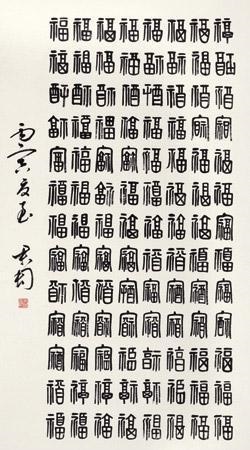 福福福福福福福福福福福福福
福福福福福福福福福福福福福
福福福福福福福福福福福福福
福福福福福福福福福福福福福
福福福福福福福福福福福福福
福福福福福福福福福福福福福
福福福福福福福福福福福福福
福福福福福福福福福福福福福
丙寅夏至 君匋